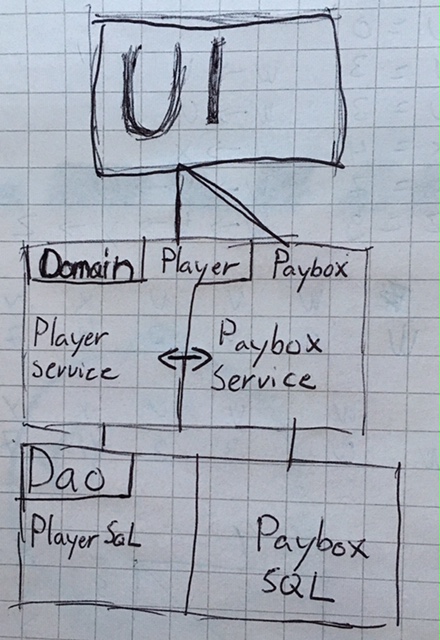 UI
Domain
Player
Paybox
Player
service
Paybox
Service
Dao
Player SQL
Paybox
SQL